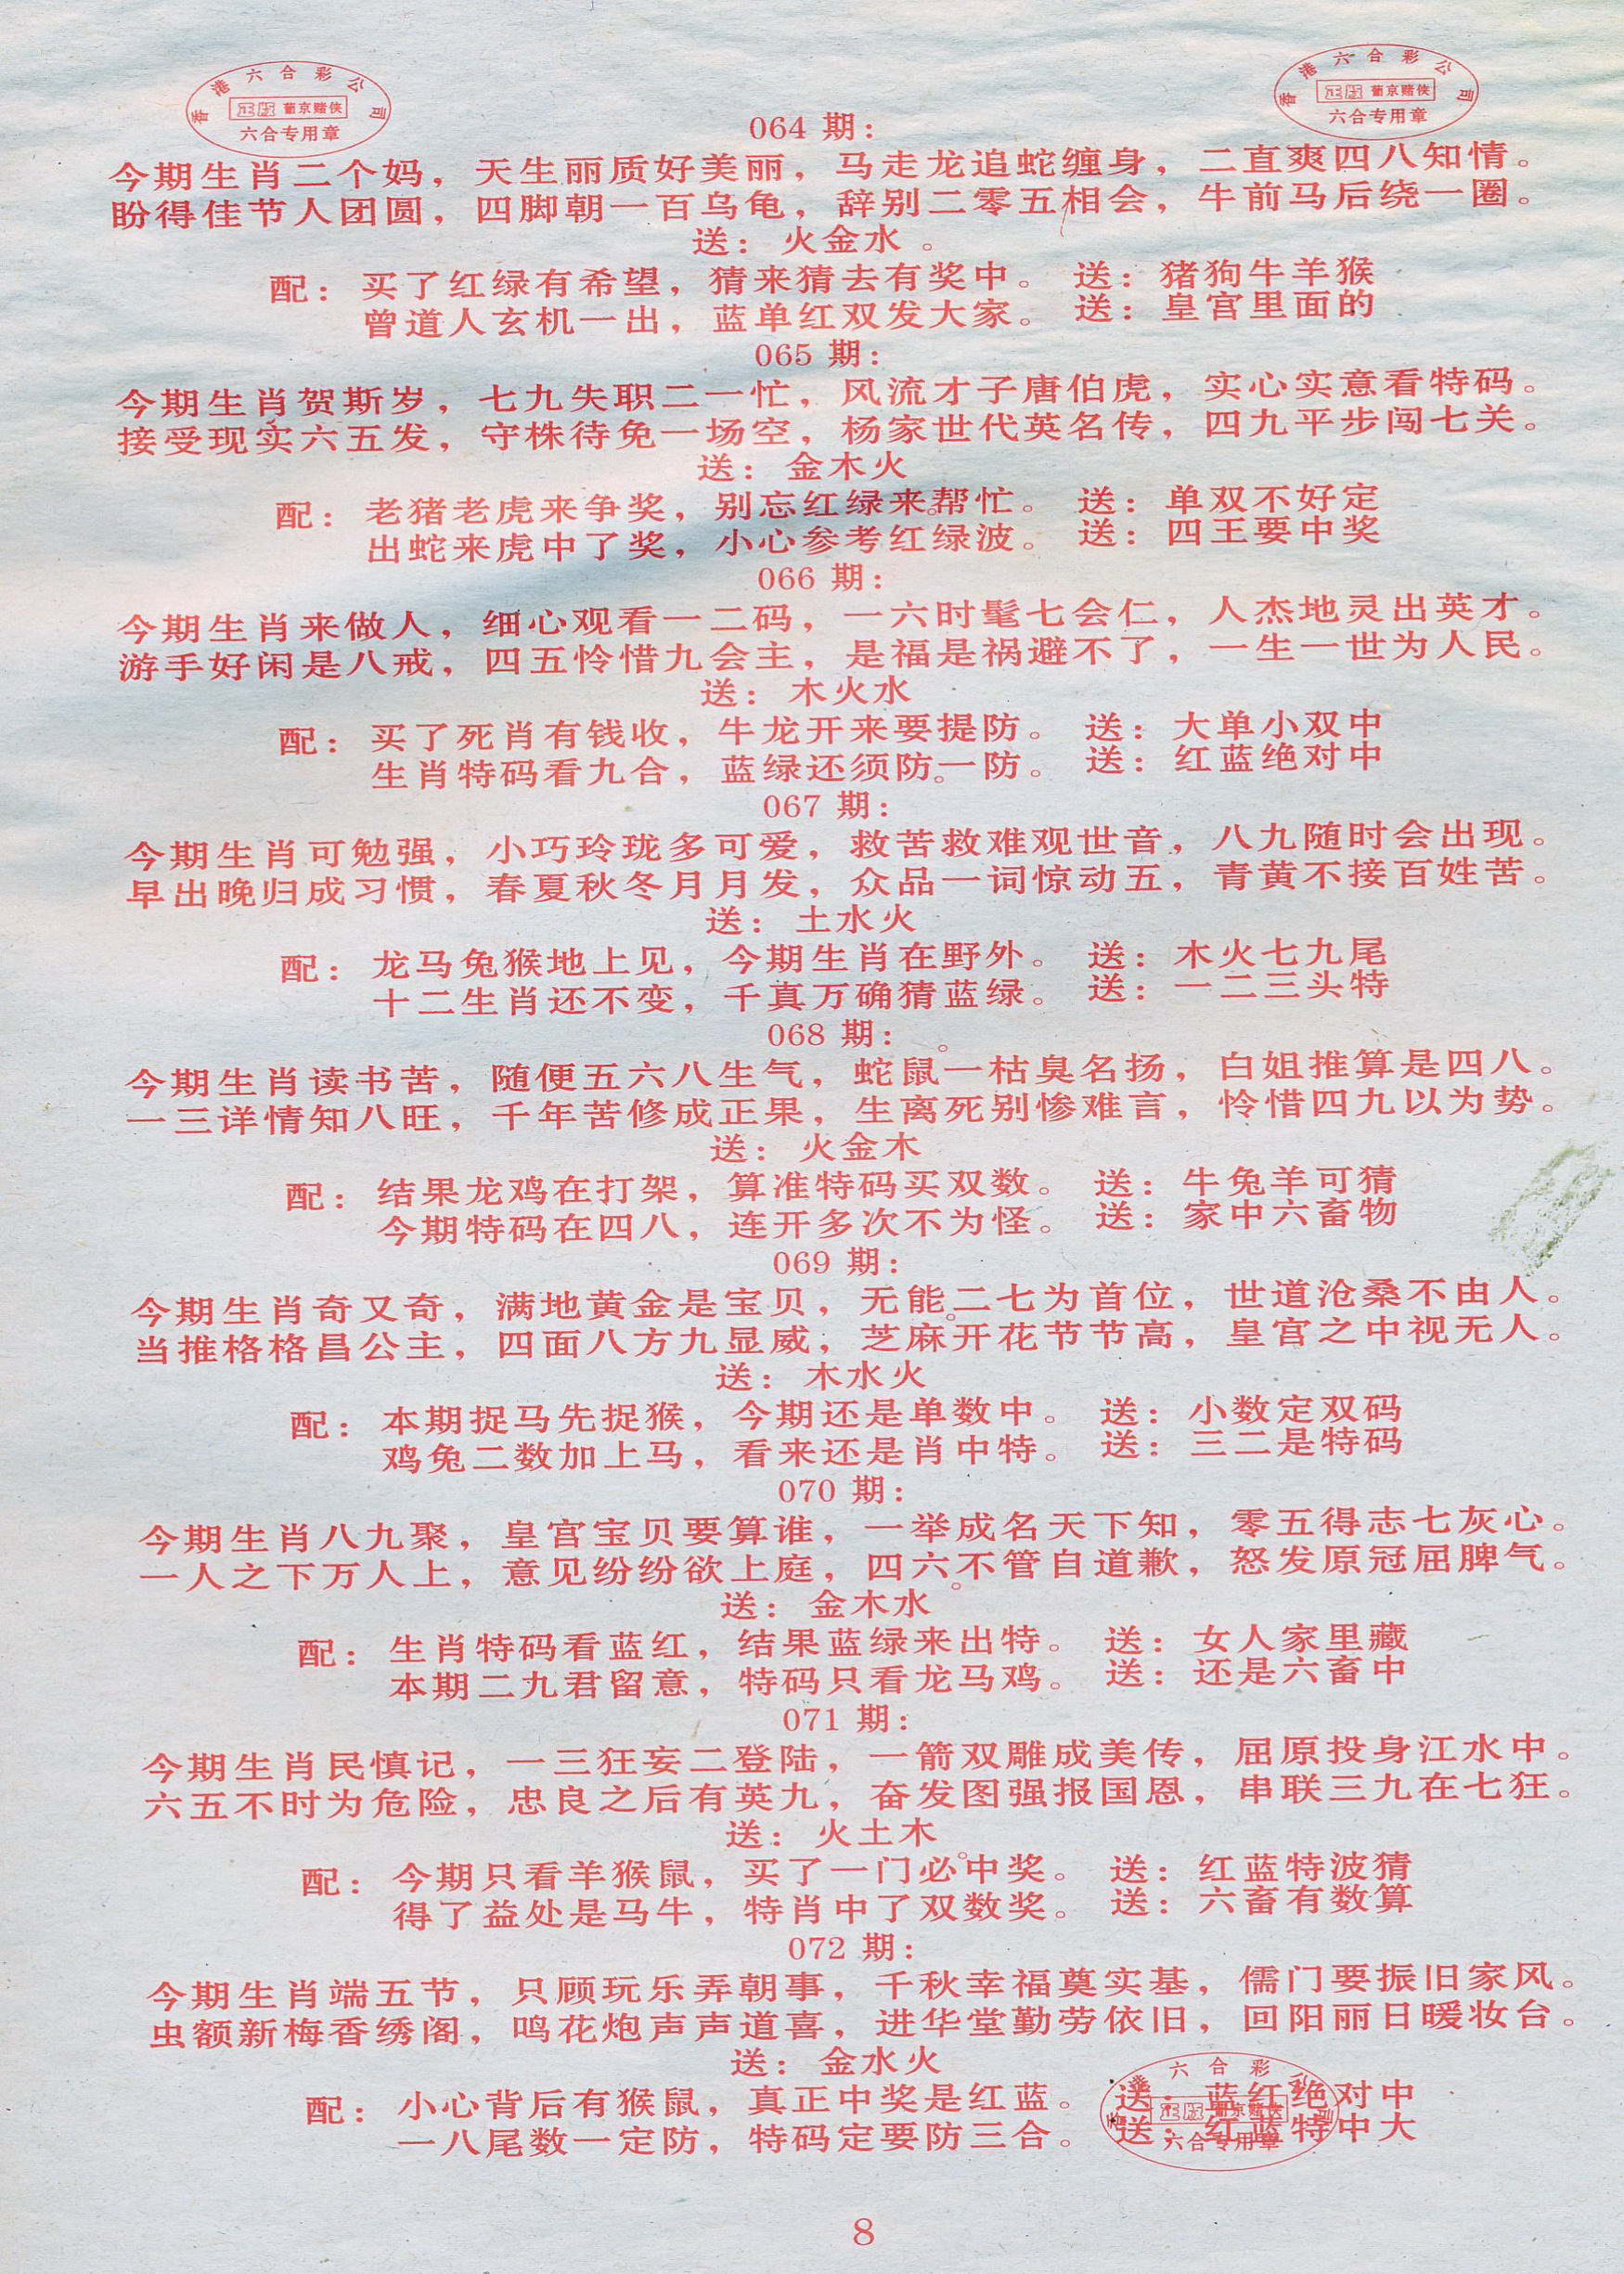 香港六合彩公司
正版 葡京赌侠
六合专用章
香港六合彩公司
正版 葡京赌侠
六合专用章
064 期：
今期生肖二个妈，天生丽质好美丽，马走龙追蛇缠身，二直爽四八知情。
盼得佳节人团圆，四脚朝一百乌龟，辞别二零五相会，牛前马后绕一圈。
送：火金水。
配：买了红绿有希望，猜来猜去有奖中。 送：猪狗牛羊猴
曾道人玄机一出，蓝单红双发大家。 送：皇宫里面的
065 期：
今期生肖贺斯岁，七九失职二一忙，风流才子唐伯虎，实心实意看特码。
接受现实六五发，守株待免一场空，杨家世代英名传，四九平步闯七关。
送：金木火
配：老猪老虎来争奖，别忘红绿来帮忙。 送：单双不好定
出蛇来虎中了奖，小心参考红绿波。 送：四王要中奖
066 期：
今期生肖来做人，细心观看一二码，一六时髦七会仁，人杰地灵出英才。
游手好闲是八戒，四五怜惜九会主，是福是祸避不了，一生一世为人民。
送：木火水
配：买了死肖有钱收，牛龙开来要提防。 送：大单小双中
生肖特码看九合，蓝绿还须防一防。 送：红蓝绝对中
067 期：
今期生肖可勉强，小巧玲珑多可爱，救苦救难观世音，八九随时会出现。
早出晚归成习惯，春夏秋冬月月发，众品一词惊动五，青黄不接百姓苦。
送：土水火
配：龙马兔猴地上见，今期生肖在野外。 送：木火七九尾
十二生肖还不变，千真万确猜蓝绿。 送：一二三头特
068 期：
今期生肖读书苦，随便五六八生气，蛇鼠一枯臭名扬，白姐推算是四八。
一三详情知八旺，千年苦修成正果，生离死别惨难言，怜惜四九以为势。
送：火金木
配：结果龙鸡在打架，算准特码买双数。 送：牛兔羊可猜
今期特码在四八，连开多次不为怪。 送：家中六畜物
069 期：
今期生肖奇又奇，满地黄金是宝贝，无能二七为首位，世道沧桑不由人。
当推格格昌公主，四面八方九显威，芝麻开花节节高，皇宫之中视无人。
送：木水火
配：本期捉马先捉猴，今期还是单数中。 送：小数定双码
鸡兔二数加上马，看来还是肖中特。 送：三二是特码
070 期：
今期生肖八九聚，皇宫宝贝要算谁，一举成名天下知，零五得志七灰心。
一人之下万人上，意见纷纷欲上庭，四六不管自道歉，怒发原冠屈脾气。
送：金木水
配：生肖特码看蓝红，结果蓝绿来出特。 送：女人家里藏
本期二九君留意，特码只看龙马鸡。 送：还是六畜中
071 期：
今期生肖民慎记，一三狂妄二登陆，一箭双雕成美传，屈原投身江水中。
六五不时为危险，忠良之后有英九，奋发图强报国恩，串联三九在七狂。
送：火土木
配：今期只看羊猴鼠，买了一门必中奖。 送：红蓝特波猜
得了益处是马牛，特肖中了双数奖。 送：六畜有数算
072 期：
今期生肖端五节，只顾玩乐弄朝事，千秋幸福奠实基，儒门要振旧家风。
虫额新梅香绣阁，鸣花炮声声道喜，进华堂勤劳依旧，回阳丽日暖妆台。
送：金水火
配：小心背后有猴鼠，真正中奖是红蓝。 送：蓝红绝对中
一八尾数一定防，特码定要防三合。 送：红蓝特中大
香港六合彩公司
正版 葡京赌侠
六合专用章
8